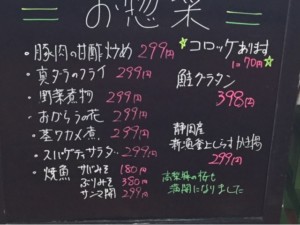 お惣菜
・豚肉の甘酢炒め 299円
・真タラのフライ 299円
・野菜煮物 299円
・おからうの花 299円
・茎ワカメ煮 299円
・スパゲティサラダ 299円
・焼魚 サバみそ 180円
ぶりみそ 380円
サンマ開 299円
☆コロッケあります☆
1コ70円
鮭グラタン
398円
静岡産
299円
満開になりました